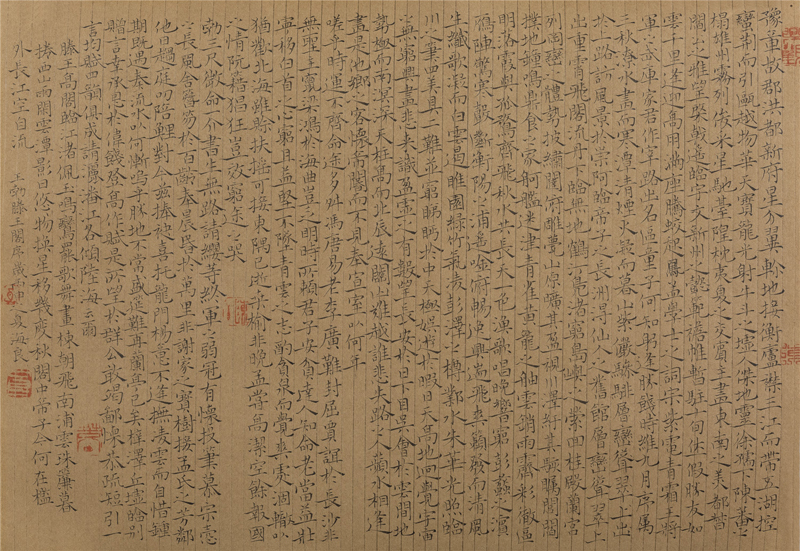 豫章故郡洪都新府星分翼軫地接衡廬襟三江而帶五湖控
蠻荆而引甌越物華天寶龍光射牛斗之墟人傑地靈徐孺下陳蕃之
榻雄州霧列俊采星馳臺隍枕夷夏之交賓主盡東南之美都督
閻公之雅望棨戟遙臨宇文新州之懿範襜帷暫駐十旬休假勝友如
雲千里逢迎高朋滿座騰蛟起鳳孟學士之詞宗紫電青霜王將
軍之武庫家君作宰路出名區童子何知躬逢勝餞時維九月序屬
三秋潦水盡而寒潭清煙光凝而暮山紫儼驂騑層巒聳翠上出
於上路訪風景於崇阿臨帝子之長洲得仙人之舊館層巒聳翠上
出重霄飛閣流丹下臨無地鶴汀鳧渚窮島嶼之縈迴桂殿蘭宮
列岡巒之體勢披繡闥俯雕甍山原曠其盈視川澤紆其駭矚閭閻
撲地鐘鳴鼎食之家舸艦迷津青雀黃龍之舳雲銷雨霽彩徹區
明落霞與孤鶩齊飛秋水共長天一色漁歌唱晚響窮彭蠡之濱
雁陣驚寒聲斷衡陽之浦遙吟俯暢逸興遄飛爽籟發而清風
生纖歌凝而白雲遏睢園綠竹氣凌彭澤之樽鄴水朱華光照臨
川之筆四美具二難並窮睇眄於中天極娛遊於暇日天高地迥覺宇宙
之無窮興盡悲來識盈虛之有數望長安於日下目吳會於雲間地
勢極而南溟深天柱高而北辰遠關山難越誰悲失路之人萍水相逢
盡是他鄉之客懷帝閽而不見奉宣室以何年
嗟乎時運不齊命途多舛馮唐易老李廣難封屈賈誼於長沙非
無聖主竄梁鴻於海曲豈乏明時所賴君子安貧達人知命老當益壯
寧移白首之心窮且益堅不墜青雲之志酌貪泉而覺爽處涸轍以
猶歡北海雖賒扶搖可接東隅已逝桑榆非晚孟嘗高潔空餘報國
之情阮籍猖狂豈效窮途之哭
勃三尺微命一介書生無路請纓等終軍之弱冠有懷投筆慕宗愨
之長風舍簪笏於百齡奉晨昏於萬里非謝家之寶樹接孟氏之芳鄰
他日趨庭叨陪鯉對今茲捧袂喜托龍門楊意不逢撫凌雲而自惜鍾
期既遇奏流水以何慚嗚乎勝地不常盛筵難再蘭亭已矣梓澤丘墟臨別
贈言幸承恩於偉餞登高作賦是所望於群公敢竭鄙懷恭疏短引一
言均賦四韻俱成請灑潘江各傾陸海云爾
滕王高閣臨江渚佩玉鳴鸞罷歌舞畫棟朝飛南浦雲珠簾暮
捲西山雨閒雲潭影日悠悠物換星移幾度秋閣中帝子今何在檻
外長江空自流
王勃滕王閣序歲夏海良